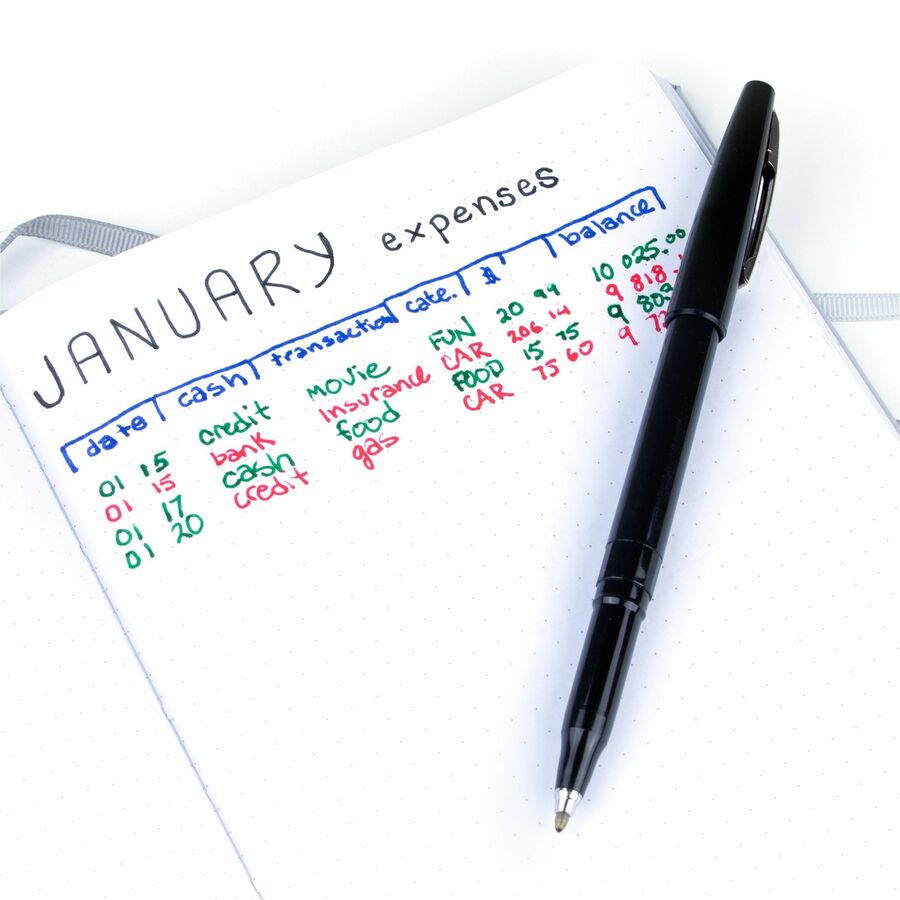 JANUARY expenses
date cash transaction cate. $ balance
01 15 credit movie FUN 20 99 10 025.00
01 15 bank Insurance CAR 206 14 9 818.
01 17 cash food FOOD 15 75 9 803.
01 20 credit gas CAR 75 60 9 72